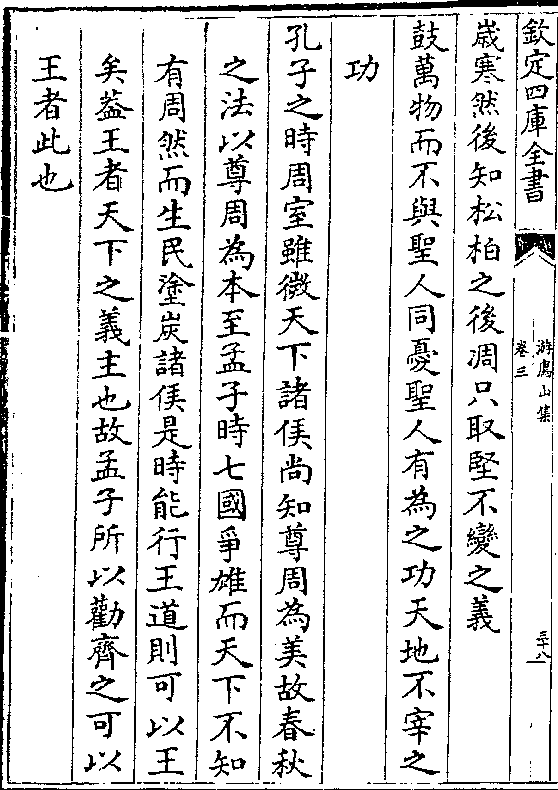 欽定四庫全書
游廌山集
卷三
三十八
歳寒然後知松柏之後凋只取堅不變之義
鼓萬物而不與聖人同憂聖人有為之功天地不宰之
功
孔子之時周室雖微天下諸侯尚知尊周為美故春秋
之法以尊周為本至孟子時七國爭雄而天下不知
有周然而生民塗炭諸侯是時能行王道則可以王
矣葢王者天下之義主也故孟子所以勸齊之可以
王者此也